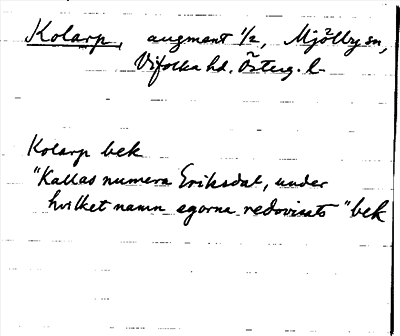 Kolarp, augment 1/2, Mjölby sn,
Vifolka hd. Österg. l.
Kolarp bek
"Kallas numera Eriksdal, under
hvilket namn egorna redovisats" bek